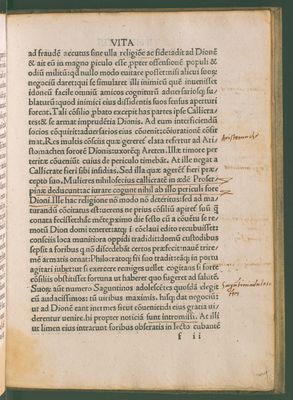 VITA
ad fraudẽ acutus sine ulla religiõe ac fide: adit ad Dionẽ
& ait eũ in magno piculo esse ꝓpter offensionẽ populi &
odiũ militũ: qd nullo modo euitare posset: nisi alicui suoꝝ
negociũ daret: qui se simularet illi inimicũ quẽ inuenisset
idoneũ facile omniũ amicos cogniturũ aduersariosq;
blaturũ: quod inimici eius dissidentis suos sensus aperturi
forent. Tali cõsilio ꝓbato excepit has partes ipse Callicra
tes: & se armat imprudẽtia Dionis. Ad eum interficiendũ
socios cõquirit: aduersarios eius cõuenit: cõiurationẽ cõfir
mat. Res multis cõsciis quæ gereret elata refertur ad Ari
stomachen sororẽ Dionis: uxorẽq; Areten. Illæ timore per
territæ cõueniũt cuius de periculo timebãt. At ille negat a
Callicrate fieri sibi insidias. Sed illa quæ agerẽt fieri præ
cepto suo. Mulieres nihilosecius callicratẽ in ædẽ Proser
pinæ deducunt: ac iurare cogunt nihil ab illo periculi fore
Dioni. Ille hac religione nõ modo nõ deteritus: sed ad ma
turandũ cõcitatus est: uerens ne prius cõsiliũ aperiret suũ
conata fecisset
tũ Dion domi teneret
consciis loca munitiora oppidi tradidit: domũ custodibus
sepsit: a foribus q nõ discedebãt certos præfecit: nauẽ trire
mẽ armatis ornat: Philocratoq; fri suo tradit: eãq; in portu
agitari iubet: ut si exercere remiges uellet cogitans si forte
cõsiliis obstitisset fortuna ut haberet quo fugeret ad salutẽ.
Suoꝝ aũt numero Saguntinos adolescẽtes quosdã elegit
cũ audacissimos: tũ uiribus maximis. hisq; dat negociũ:
ut ad Dionẽ eant inermes sicut cõueniendi eius gratia ui
derentur uenire. hi propter noticiã sunt intromissi. At illi
ut limen eius intrarunt foribus obseratis in lecto cubantẽ
f ii